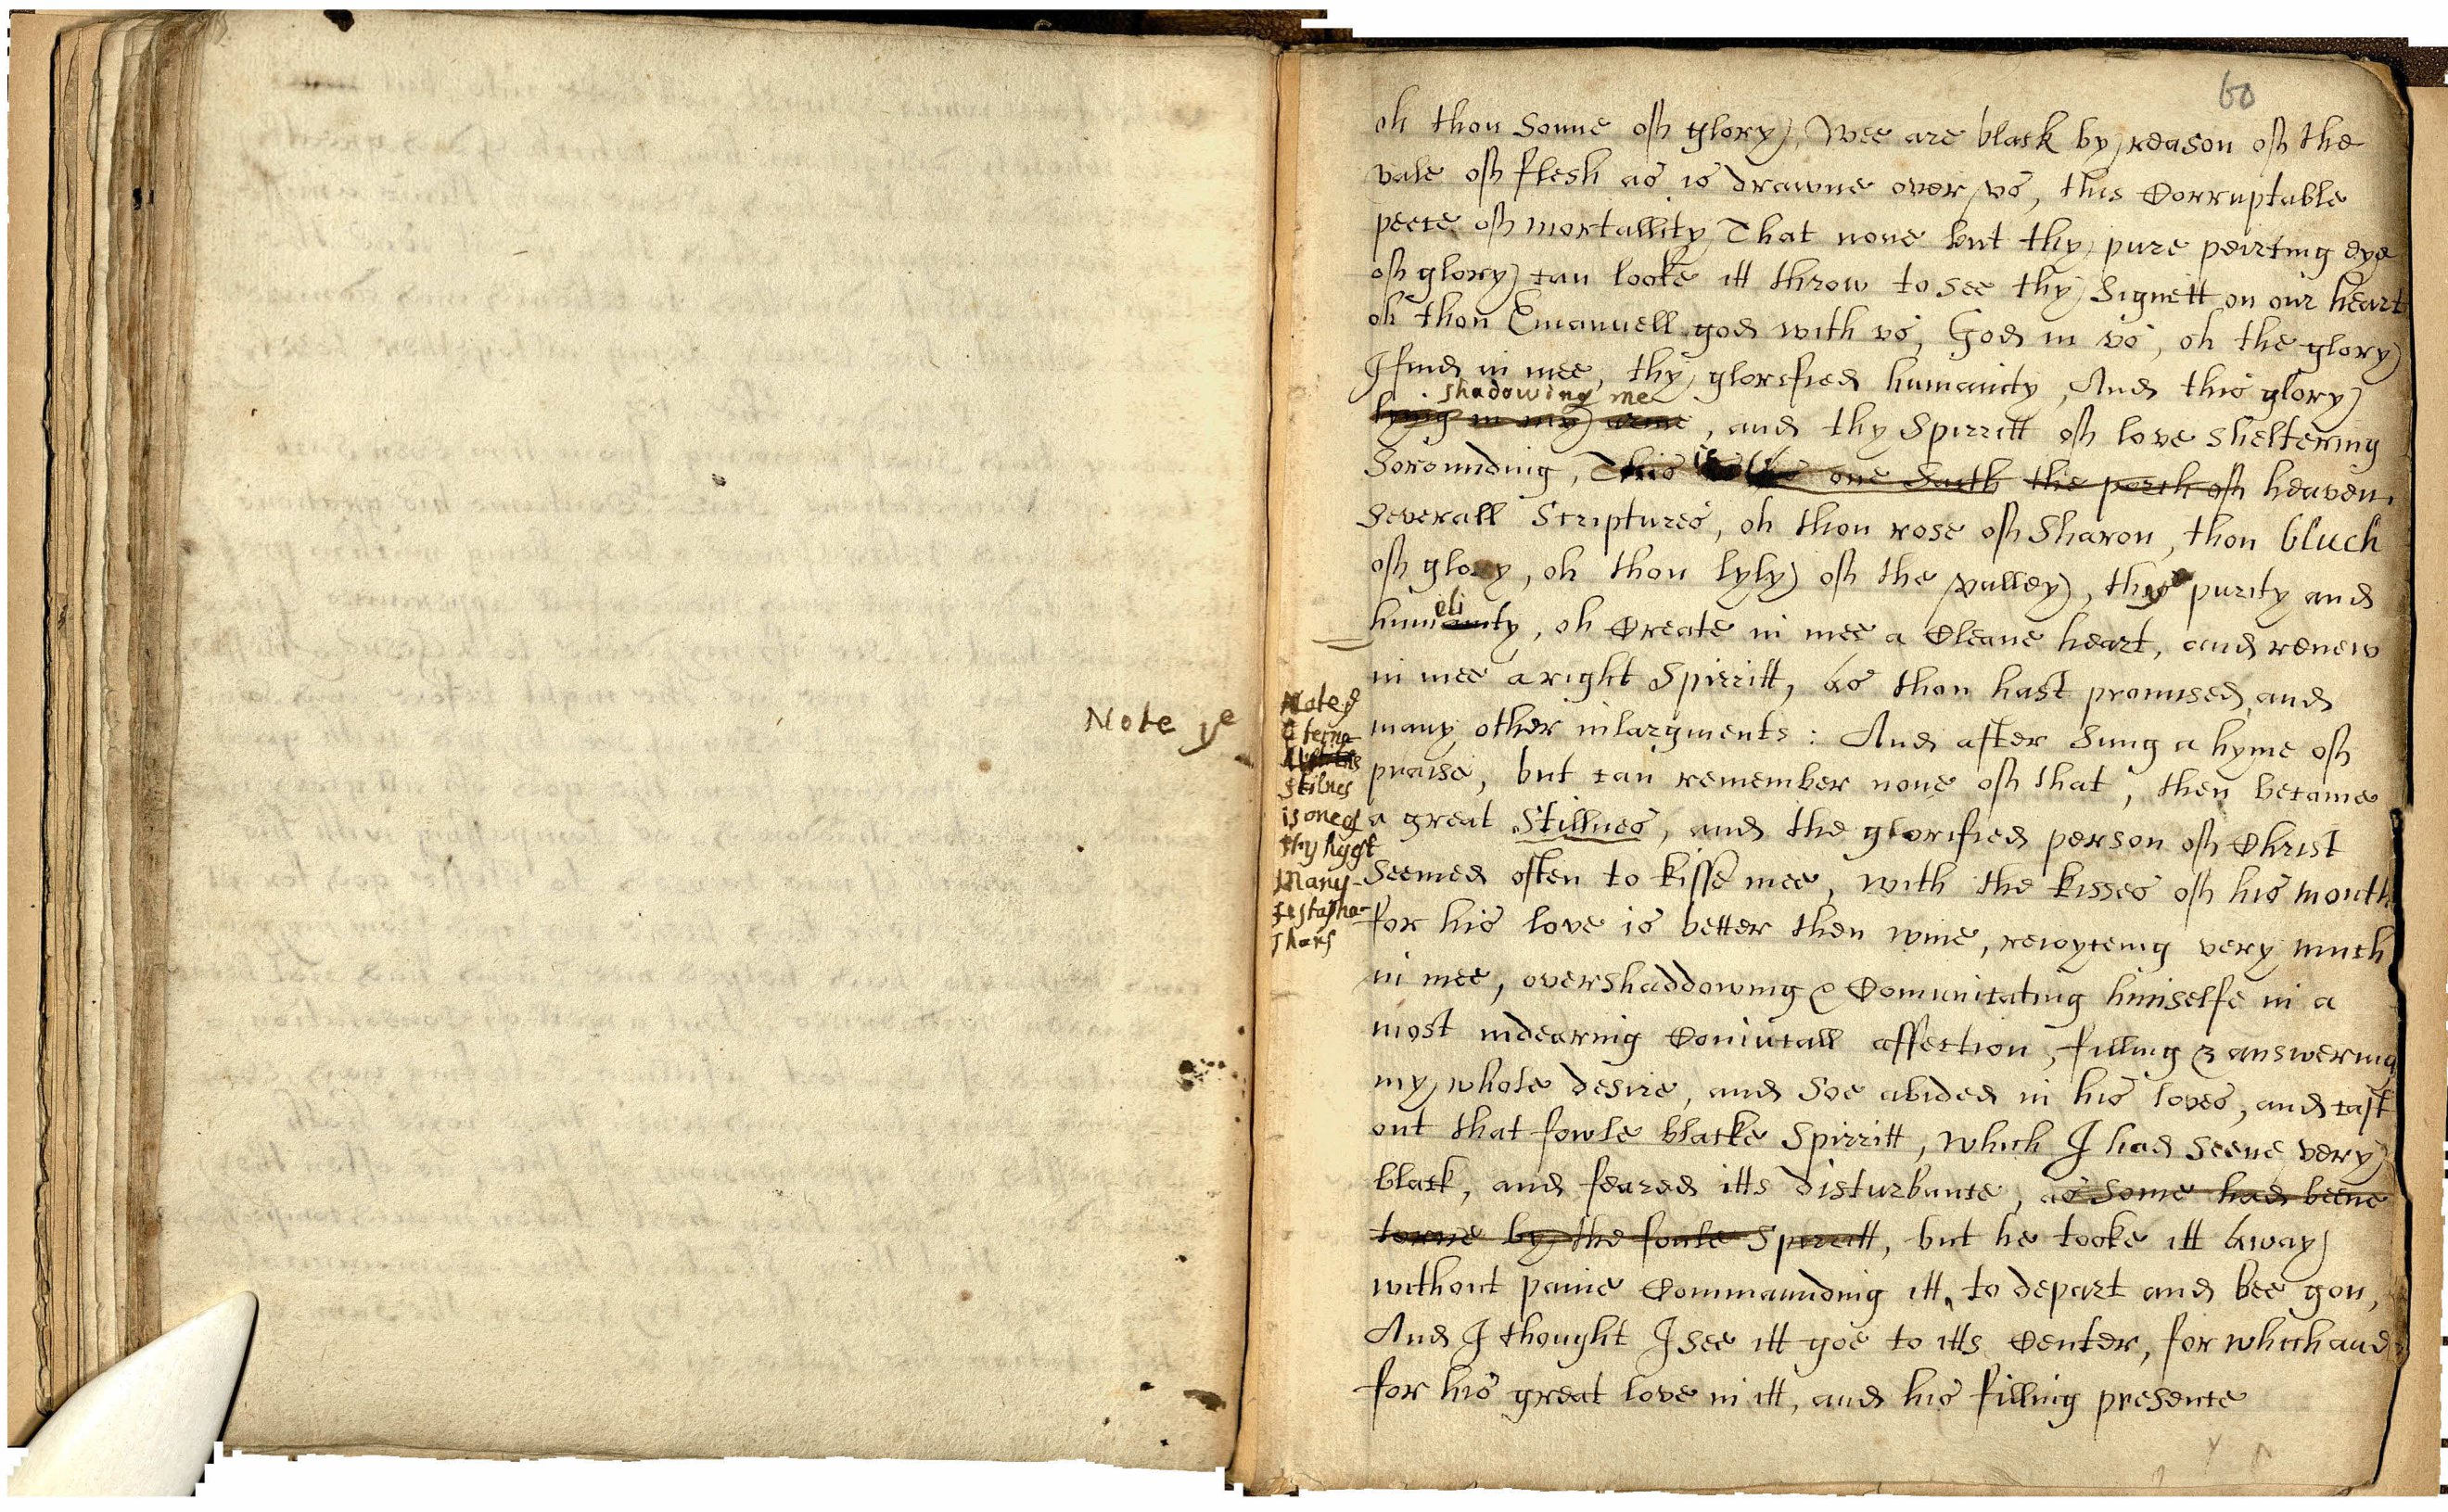 60
oh thou Sonne of glory, Wee are black by reason of the
vale of flesh as is drawne over vs, this Corruptable
peece of mortallity That none but thy pure peircing eye
of glory can looke itt throw to see thy Signett on our heart
oh thou Emanuell god with vs, God in vs, oh the glory
I find in mee, thy glorified humanity, And this glory
shadowing me
lying in my arme, and thy Spirritt of love sheltering
Sorounding, This is one saith the porch of heaven.
Severall Scriptures, oh thou rose of Sharon, thou bluch
of glory, oh thou lyly of the valley, thye purity and
eli
humanity, oh Create in mee a Cleane heart, and renew
in mee a right Spirritt, as thou hast promised, and
many other inlargments: And after Sung a hyme of
praise, but can remember none of that, then became
a great Stillnes, and the glorified person of Christ
Seemed often to kisse mee, with the kisses of his mouth
for his love is better then wine, reioyceing very much
in mee, overshaddowing & Comunicating himselfe in a
most indearing Coniucall affection, filling & answering
my whole desire, and Soe abided in his loves, and cast
out that fowle blacke Spirritt, which I had seene very
black, and feared itts disturbance, as Some had beene
torne by the foule Spirritt, but he tooke itt away
without paine Commaunding itt, to depart and bee gon,
And I thought I see itt goe to itts Center, for which and
for his great love in itt, and his filling presence
Note ye
Note ye
Eterna
Stilnes
is one of
thy hygst
Many-
festasha-
shons